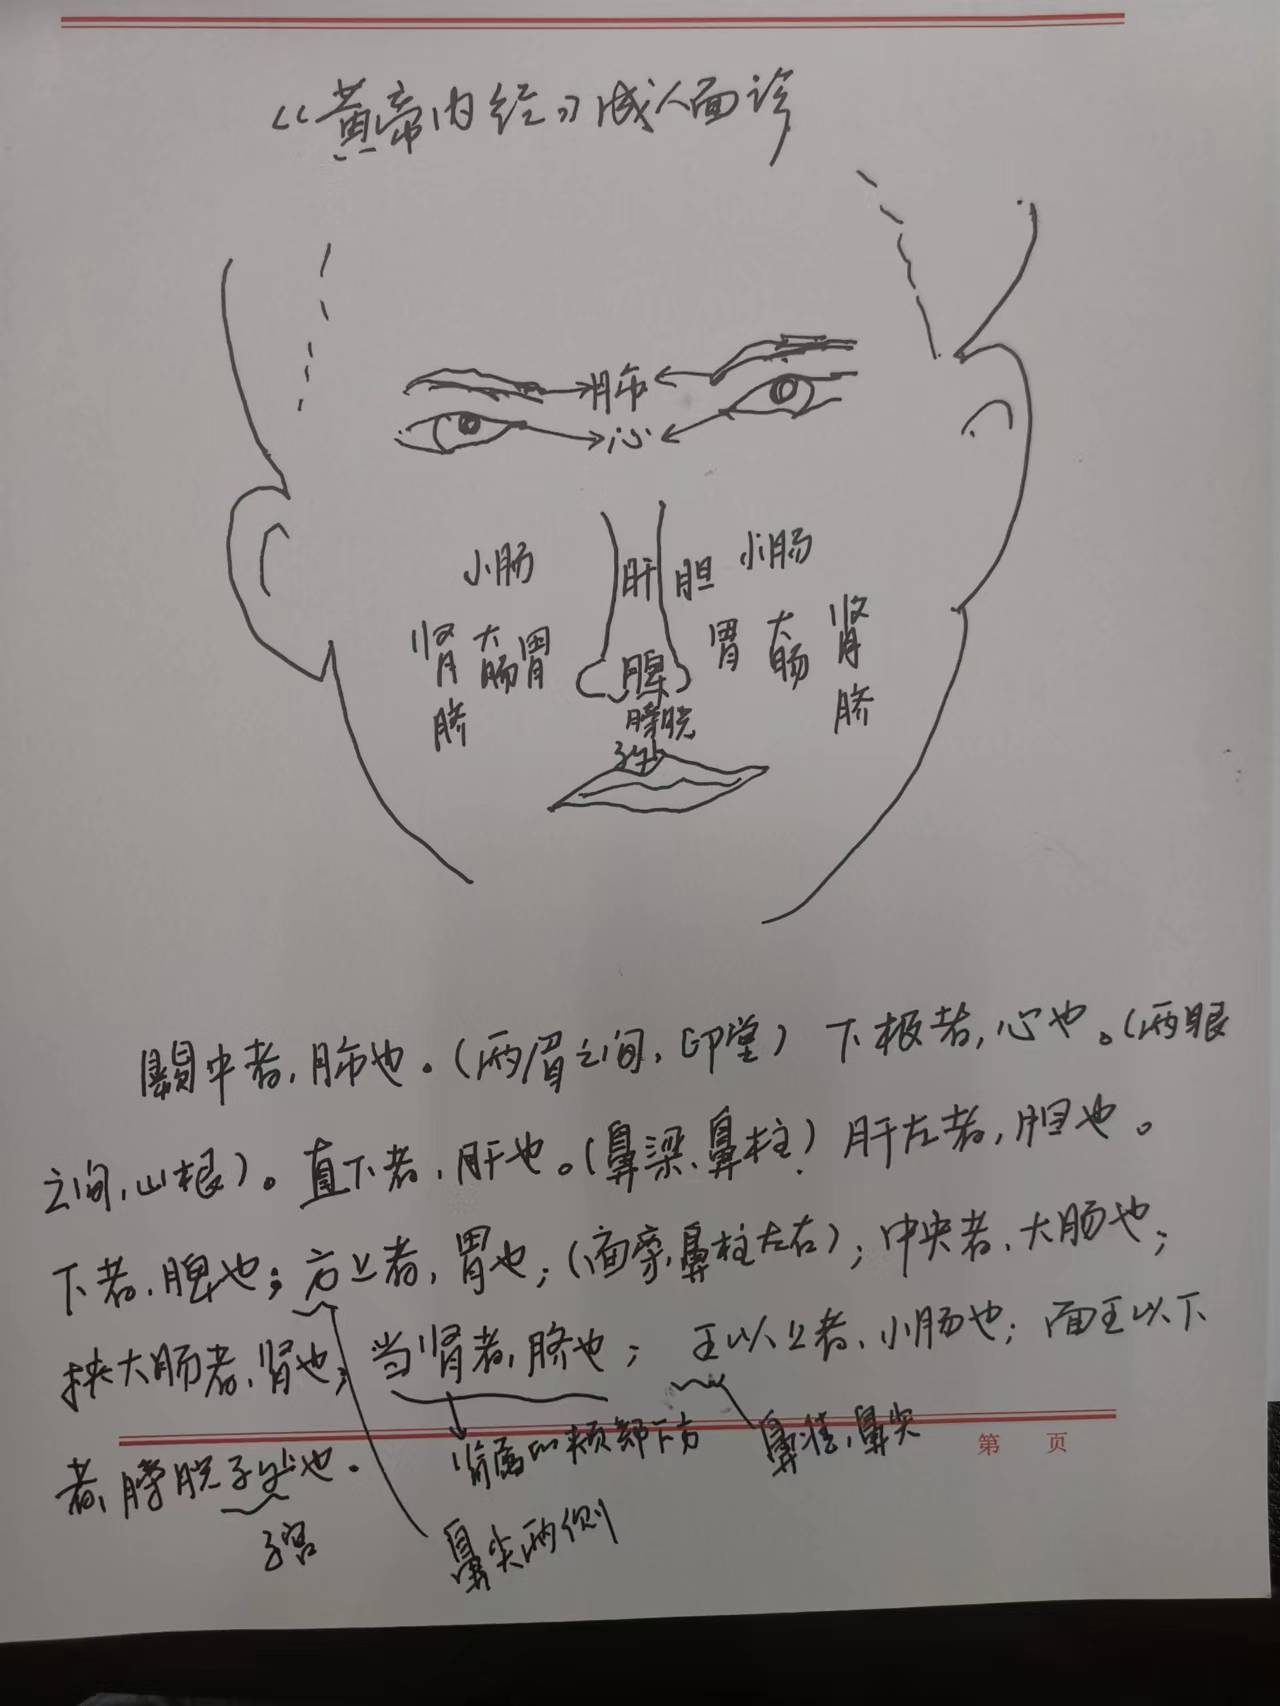 《黄帝内经》成人面诊
肺
心
小肠 肝 胆 小肠
肾 大肠 胃 脾 胃 大肠 肾
脐 膀胱 脐
子处
阙中者,肺也。(两眉之间,印堂) 下极者,心也。(两眼
之间,山根)。直下者,肝也。(鼻梁、鼻柱) 肝左者,胆也。
下者,脾也;方上者,胃也;(面旁,鼻柱左右);中央者、大肠也;
挟大肠者,肾也;当肾者,脐也; 王以上者、小肠也;面王以下
者,膀胱子处也。
颊部下方 鼻准,鼻尖
第 页
子宫 鼻尖两侧